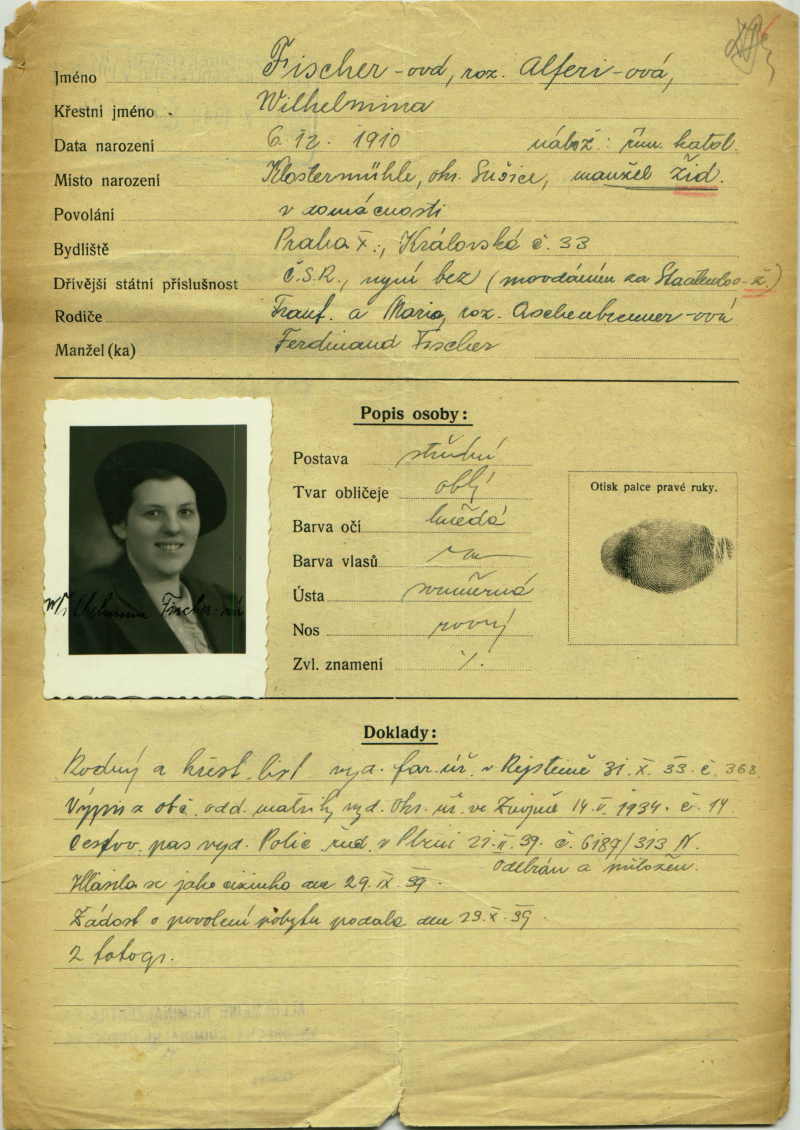 Jméno Fischer-ová, roz. Alferi-ová,
Křestní jméno Wilhelmina
Data narození 6. 12. 1910 nábož: řím. katol.
Místo narození Klostermühle, okr. Sušice, manžel žid.
Povolání v domácnosti
Bydliště Praha X., Královská č. 33
Dřívější státní příslušnost Č.S.R., nyní bez (
Rodiče Frant. a Marie, roz. Aschenbrenner-ová
Manžel(ka) Ferdinand Fischer
Popis osoby:
Postava střední
Tvar obličeje oblý
Barva očí hnědá
Barva vlasů
Ústa souměrná
Nos rovný
Zvl. znamení ./.
Otisk palce pravé ruky.
Wilhelmina Fischer-ová
Doklady:
Rodný a křest. list vyd. far. úř. v Rejštejně 31. X. 33. č. 368
Výpis z vyd. Okr. úř. ve 14. V. 1934. č. 14
Cestov. pas vyd. Polic. řed. v Plzni 21. II. 39. č. 6187/313 N.
Odebrán a
Hlásila se jako cizinka dne 29. IX. 39.
Žádost o povolení pobytu podala dne 23. X. 39.
2 fotogr.